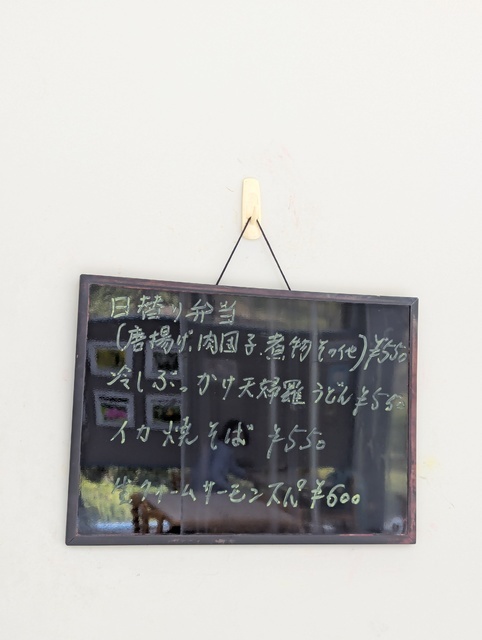 日替り弁当
(唐揚げ、肉団子、煮物その他)¥550
冷しぶっかけ天婦羅うどん¥550
イカ焼そば ¥550
サーモンスパ¥600